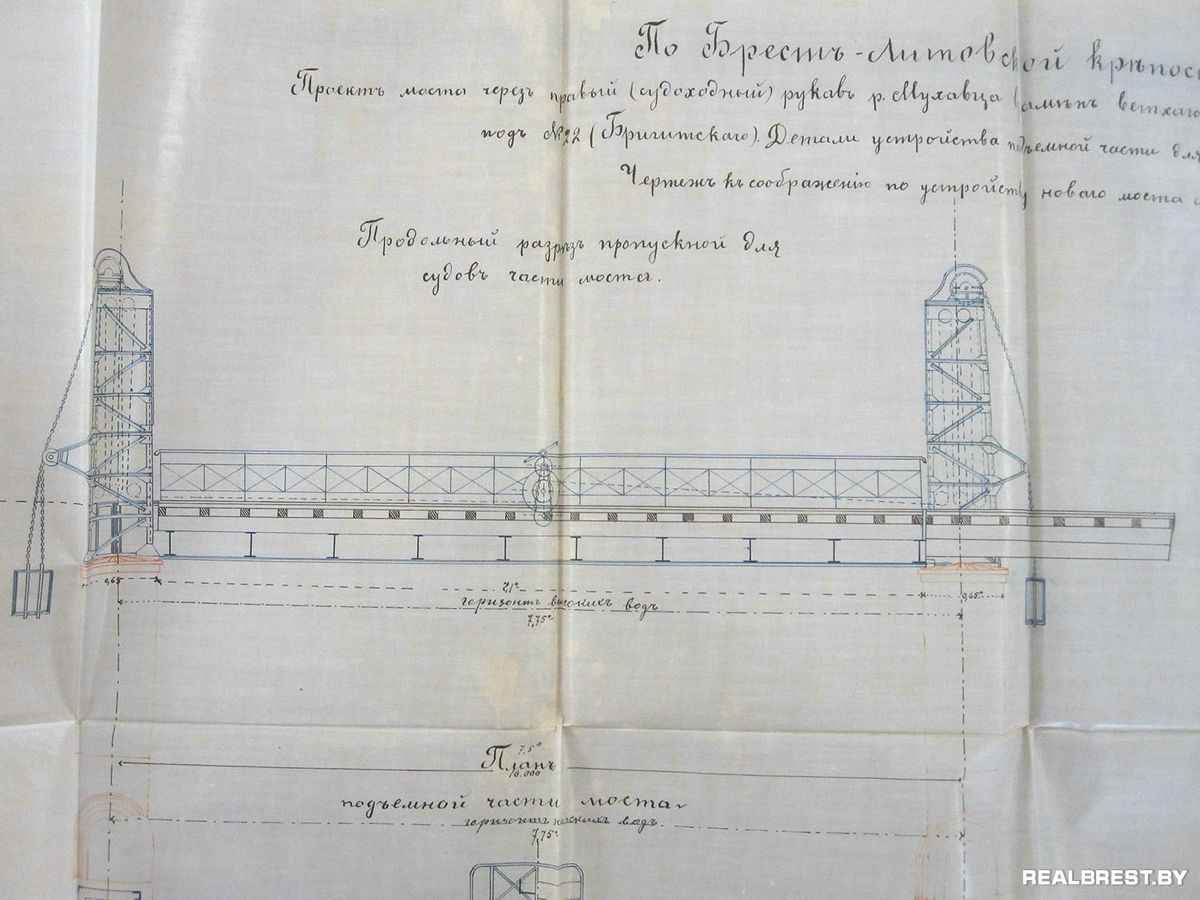 По Брестъ-Литовской крѣпос
Проектъ моста черезъ правый (судоходный) рукавъ р. Мухавца взамѣнъ ветхаго
подъ №22 (Бригитскаго). Детали устройства подъемной части для
Чертежъ къ соображенію по устройству новаго моста
Продольный разрѣзъ пропускной для
судовъ части моста.
0,65
7,1°
0,65°
горизонтъ высокихъ водъ
7,75°
7,5°
Планъ
подъемной части моста
горизонтъ водъ
7,75°
REALBREST.BY